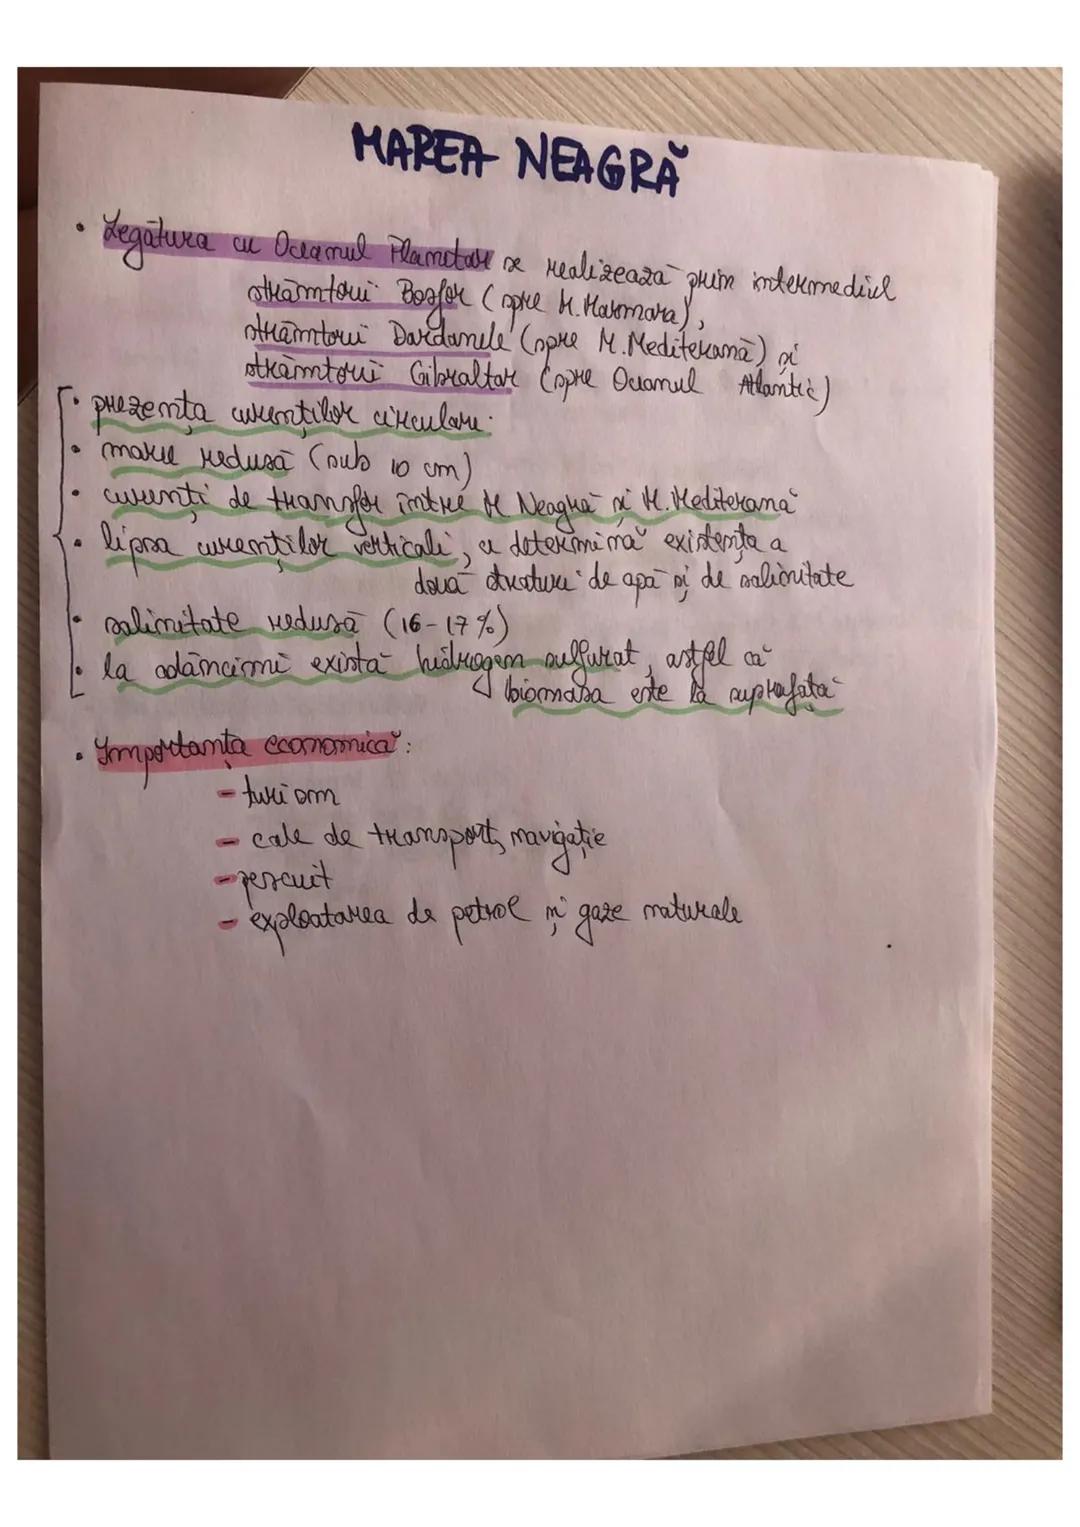 MAREA NEAGRĂ
• Legătura cu Oceanul Planetar se realizează prin intermediul
strâmtorii Bosfor (spre M. Marmara),
strâmtorii Dardanele (spre M. Mediterană) și
strâmtorii Gibraltar (spre Oceanul Atlantic)
• prezența curenților circulari.
• maree redusă (sub 10 cm)
• curenți de transfer între M Neagră și M. Mediterană
• lipsa curenților verticali, ce determină existența a
două straturi de apă și de salinitate
• salinitate redusă (16-17%)
• la adâncimi există hidrogen sulfurat, astfel că
biomasa este la suprafață
• Importanța economică:
- turism
- cale de transport, navigație
- pescuit
- exploatarea de petrol și gaze naturale